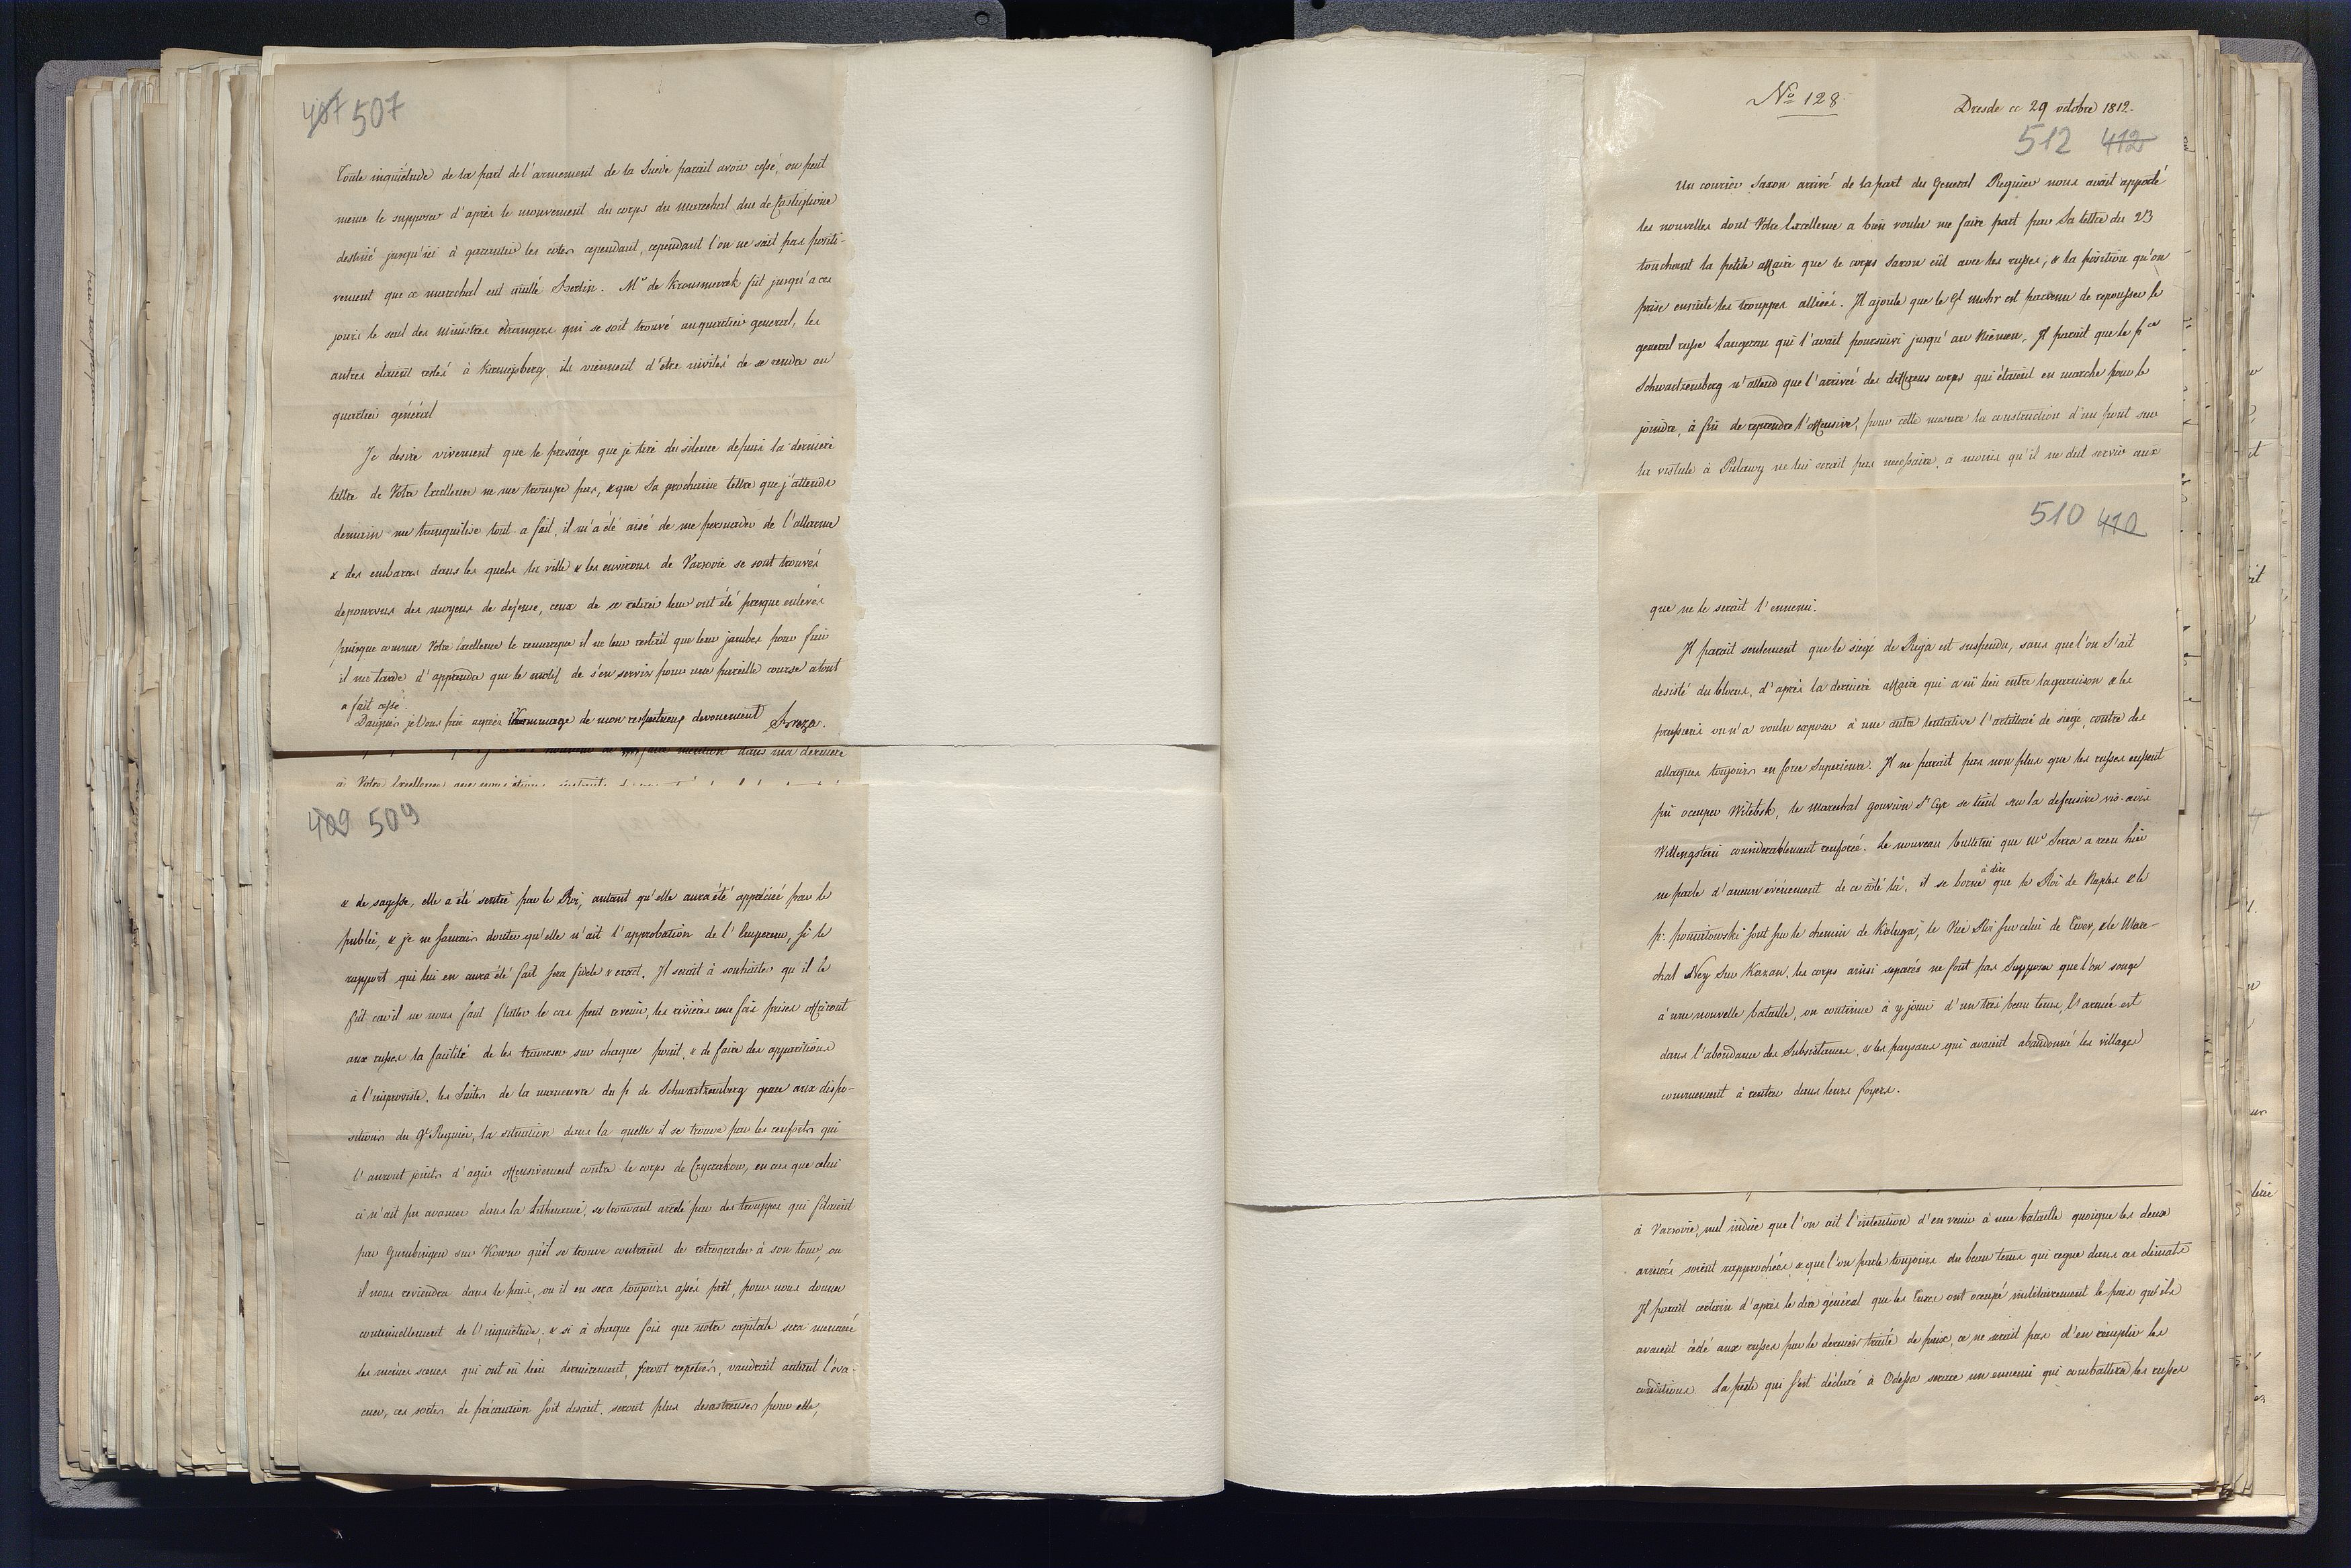 407 507
Toute inquiétude de la part de l'armement de la Suède parait avoir cessé, on peut
meme le supposer d'après le mouvement du corps du marechal duc de Castiglione
destiné jusqu'ici à garantir les cotes cependant, cependant l'on ne sait pas positi-
vement que ce marechal eut quitté Berlin. Mr de Krousmarck fut jusqu'a ces
jours le seul des ministres etrangers qui se soit trouvé au quartier general, les
autres étaient restés à Koenigsberg, ils viennent d'etre invités de se rendre au
quartier général
Je desire vivement que le presage que je tire du silence depuis la derniere
lettre de Votre Excellence ne me trompe pas, & que Sa prochaine lettre que j'attends
demain me tranquilise tout a fait, il m'a été aisé de me persuader de l'allarme
& des embaras dans les quels la ville & les environs de Varsovie se sont trouvés
depourvus des moyens de defense, ceux de se retirer leur ont été presque enlevés
puisque comme Votre Excellence le remarque il ne leur restait que leur jambes pour fuir
il me tarde d'apprendre que le motif de s'en servir pour une pareille course a tout
a fait cessé.
Daignés je Vous prie agréer l'hommage de mon respectueux devouement Breza.
mention dans ma derniere
à Votre Excellence que nous étions
409 509
& de sagesse, elle a été sentie par le Roi, autant qu'elle aura été appréciée par le
public & je ne saurais douter qu'elle n'ait l'approbation de l'Empereur, si le
rapport qui lui en aura été fait sera fidele & exact. Il serait à souhaiter qu'il le
fut car il ne nous faut flatter le cas peut revenir, les rivières une fois prises offriront
aux russes la facilité de les traverser sur chaque point, & de faire des apparitions
à l'improviste, les suites de la manoeuvre du p de Schwartzenberg grace aux dispo-
sitions du Gl Regnier, la situation dans la quelle il se trouve par les renforts qui
l'auront joints d'agir offensivement contre le corps de Czyczakow, en cas que celui
ci n'ait pu avancer dans la Lithuanie, se trouvant arreté par des trouppes qui filaient
par Gumbingen sur Kowno qu'il se trouve contraint de retrograder à son tour, ou
il nous reviendra dans le pais, ou il en sera toujours assés prêt, pour nous donner
continuellement de l'inquiétude, & si à chaque fois que notre capitale sera menacée
les memes scenes qui ont eu lieu dernierement, seront repetées, vaudrait autant l'eva-
cuer, ces sortes de précaution soit disant, seront plus desastreuses pour elle,
No 128
Dresde ce 29 octobre 1812.
512 412
Un courier Saxon arrivé de la part du General Regnier nous avait apporté
les nouvelles dont Votre Excellence a bien voulu me faire part par Sa lettre du 23
touchant la petite affaire que le corps Saxon eût avec les russes, & la position qu'on
prise ensuite les trouppes alliées. Il ajoute que le Gl Mohr est parvenu de repousser le
general russe Langeron qui l'avait poursuivi jusqu'au Niemen, Il parait que le pce
Schwartzemberg n'attend que l'arrivée des differens corps qui étaient en marche pour le
joindre, à fin de reprendre l'offensive, pour cette mesure la construction d'un pont sur
la vistule à Pulawy ne lui serait pas necessaire, à moins qu'il ne dut servir aux
510 410
que ne le serait l'ennemi.
Il parait seulement que le siege de Riga est suspendu, sans que l'on s'ait
desisté du blocus, d'après la derniere affaire qui a eû lieu entre la garnison & les
prussiens on n'a voulu exposer à une autre tentative l'artillerie de siege, contre des
attaques toujours en force superieure. Il ne parait pas non plus que les russes eussent
pû occuper Witebsk, le marechal gouvion St Cyr se tient sur la defensive vis-avis
Wittengstein considerablement renforcé. Le nouveau bulletin que Mr Serra a recu hier
ne parle d'aucun événement de ce côté là, il se borne à dire que le Roi de Naples & le
p. poniatowski sont sur le chemin de Kaluga, le Vice Roi sur celui de Twer, & le Mare-
chal Ney sur Kazan, les corps ainsi separés ne font pas supposer que l'on songe
à une nouvelle bataille, on continue à y jouir d'un tres beau tems, l'armée est
dans l'abondance des Subsistances, & les paysans qui avaient abandonné les villages
commencent à rentrer dans leurs foyers.
à Varsovie, nul indice que l'on ait l'intention d'en venir à une bataille quoique les deux
armées soient rapprochées & que l'on parle toujours du beau tems qui regne dans ces climats
Il parait certain d'après le dire général que les Turcs ont occupé militairement le pais qu'ils
avaient cédé aux russes par le dernier traité de paix, ce ne serait pas d'en remplir les
conditions. La peste qui s'est déclaré à Odessa sera un ennemi qui combattera les russes